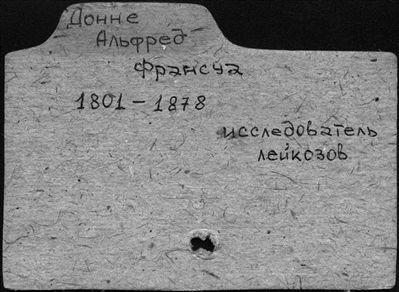 Донне
Альфред
Франсуа
1801 – 1878
исследователь
лейкозов